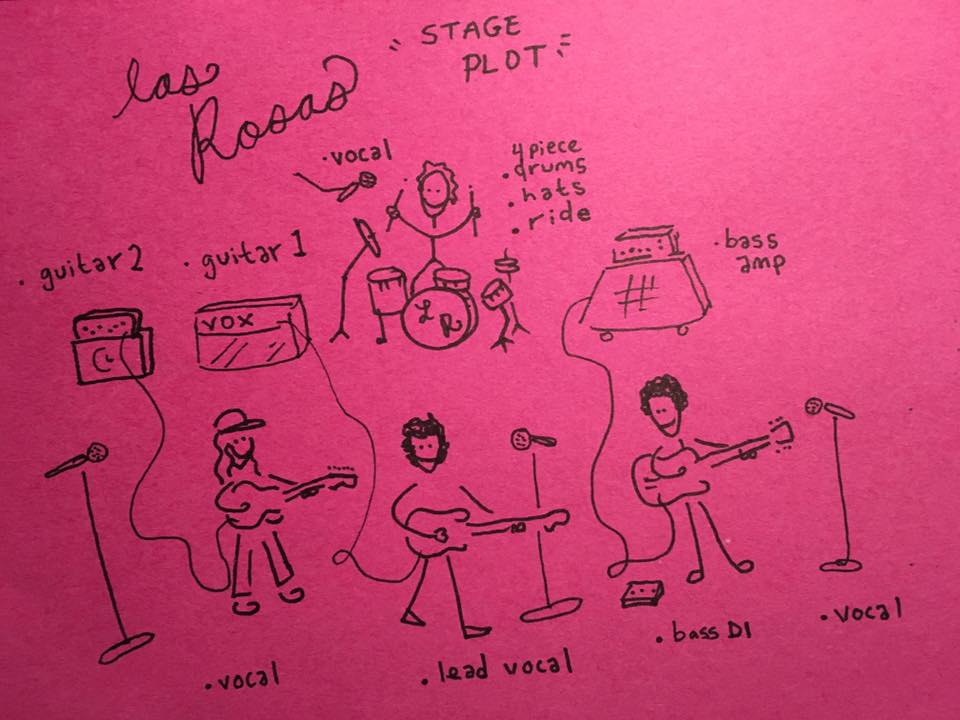 las
Rosas
"STAGE
PLOT"
· vocal
4 piece
· drums
· hats
· ride
· guitar 2
· guitar 1
· bass
amp
VOX
L
R
· vocal
· lead vocal
· bass DI
· vocal